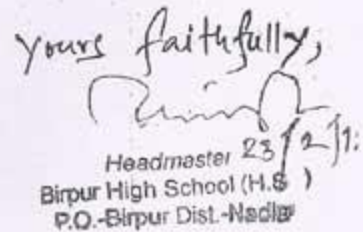 Yours faithfully,
Headmaster
Birpur High School (H.S)
P.O.-Birpur Dist.-Nadia